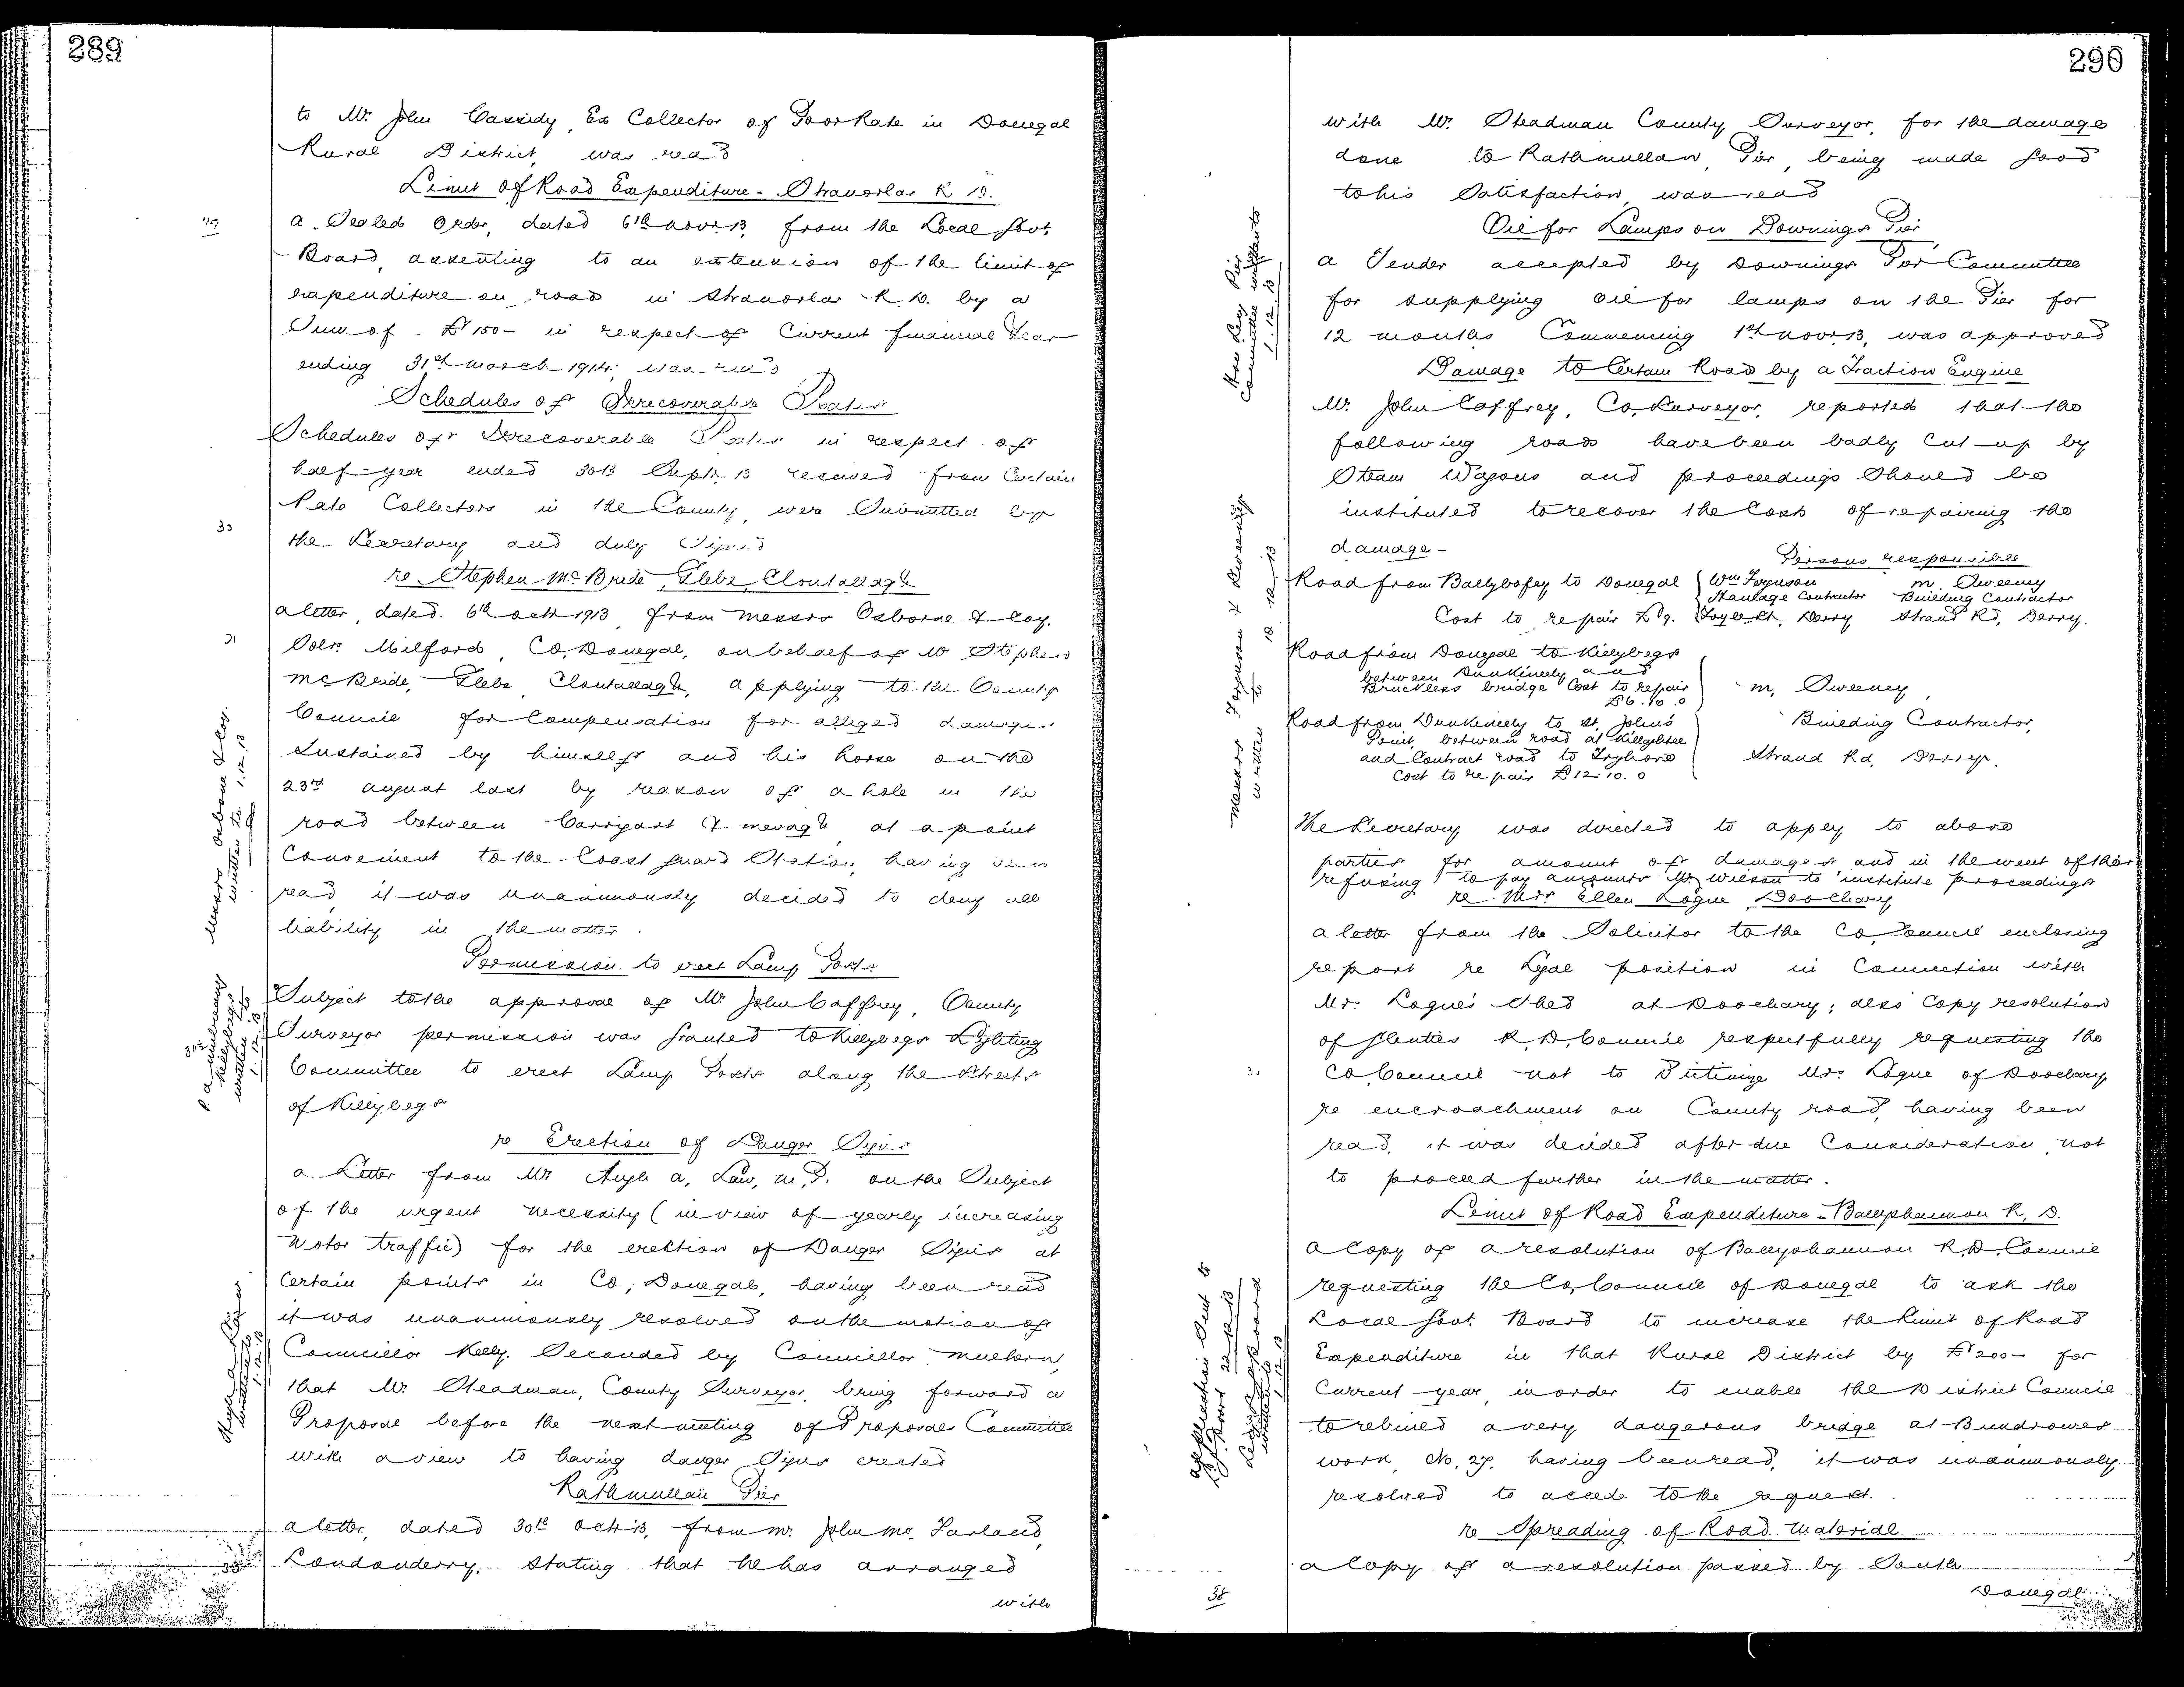 289
to Mr. John Cassidy, Ex Collector of Poor Rate in Donegal
Rural District, was read
Limit of Road Expenditure - Stranorlar R D.
a Sealed Order, dated 6th Novr. 13, from the Local Govt.
Board, assenting to an extension of the limit of
expenditure on roads in Stranorlar R.D. by a
Sum of £150- in respect of Current financial Year
ending 31st March 1914, was read
Schedules of Irrecoverable Rates
Schedules of Irrecoverable Rates in respect of
half-year ended 30th Septr. 13 received from Certain
Rate Collectors in the County, were Submitted by
30
the Secretary and duly Signed
re Stephen McBride, Glebe, Clontallagh
a letter, dated 6th Octr 1913, from Messrs Osborne & Coy.
31
Solrs. Milford, Co. Donegal, on behalf of Mr Stephen
McBride, Glebe, Clontallagh, applying to the County
Council for Compensation for alleged damages
Sustained by himself and his horse on the
23rd august last by reason of a hole in the
road between Carrigart & Mevagh at a point
Convenient to the Coast Guard Station, having been
read, it was unanimously decided to deny all
liability in the matter.
Messrs Osborne & Coy.
written to. 1.12.13
Permission to erect Lamp Posts
Subject to the approval of Mr John Caffrey, County
Surveyor permission was granted to Killybegs Lighting
Committee to erect Lamp Posts along the Streets
of Killybegs
Killybegs
written to
re Erection of Danger Signs
a Letter from Mr Hugh A. Law, M.P. on the Subject
of the urgent necessity (in view of yearly increasing
Motor traffic) for the erection of Danger Signs at
Certain points in Co. Donegal, having been read
it was unanimously resolved on the motion of
Councillor Kelly. Seconded by Councillor Mulhern,
that Mr. Steadman, County Surveyor, bring forward a
Proposal before the next meeting of Proposals Committee
with a view to having danger Signs erected
Rathmullan Pier
a letter, dated 30th Octr 13, from Mr. John McFarland,
Londonderry, stating that he has arranged
with
290
with Mr. Steadman County Surveyor, for the damage
done to Rathmullan Pier, being made good
to his Satisfaction, was read
Oil for Lamps on Downings Pier
a Tender accepted by Downings Pier Committee
for supplying oil for lamps on the Pier for
12 months Commencing 1st Novr 13, was approved
Damage to Certain Road by a Traction Engine
Mr. John Caffrey, Co. Surveyor, reported that the
following roads have been badly Cut up by
Steam Wagons and proceedings Should be
instituted to recover the Cost of repairing the
damage -
Persons responsible
Road from Ballybofey to Donegal Wm Ferguson M. Sweeney
Haulage Contractor Building Contractor
Cost to repair £9. Foyle St, Derry Strand Rd, Derry.
Road from Donegal to Killybegs
between Dunkineely and
Bruckless bridge Cost to repair M. Sweeney,
£6.10.0
Road from Dunkineely to St. John's Building Contractor,
Point, between road at Killaghtee
and Contract road to Strand Rd, Derry.
Cost to repair £12.10.0
Messrs Ferguson & Sweeney
written to 10.12.13
The Secretary was directed to apply to above
parties for amount of damages and in the event of their
refusing to pay amounts Mr Wilson to institute proceedings
re Mrs Ellen Logue, Doochary
a letter from the Solicitor to the Co. Council enclosing
report re Legal position in Connection with
Mrs. Logue's Shed at Doochary; also Copy resolution
of Glenties R.D. Council respectfully requesting the
Co. Council not to Victimize Mrs. Logue of Doochary
re encroachment on County road, having been
read, it was decided after due Consideration, not
to proceed further in the matter.
Limit of Road Expenditure - Ballyshannon R. D.
a Copy of a resolution of Ballyshannon R.D. Council
requesting the Co. Council of Donegal to ask the
Local Govt. Board to increase the Limit of Road
Expenditure in that Rural District by £200- for
Current year, in order to enable the District Council
to rebuild a very dangerous bridge at Bundrowes
work, No. 27. having been read, it was unanimously
resolved to accede to the request.
Application Sent to
L.G. Board 22.12.13
re Spreading of Road Material
38
a Copy of a resolution passed by South
Donegal